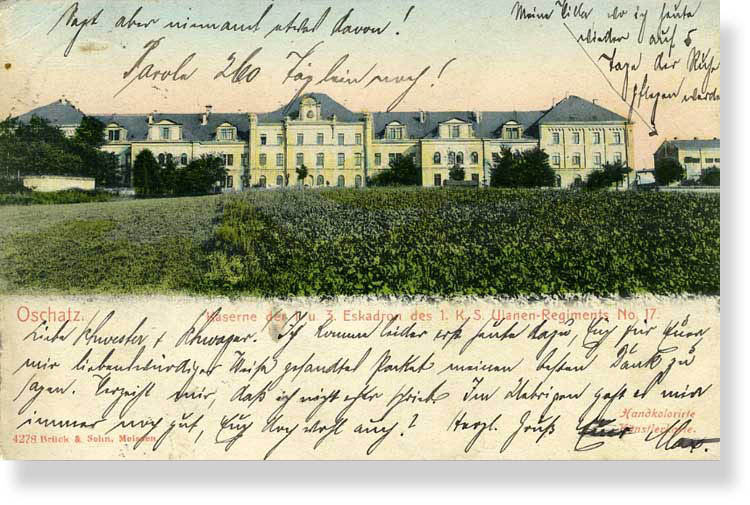 Sagt aber niemandem etwas davon!
Parole 260 Täglein noch!
Meine Villa wo ich heute
wieder auf 5
Tage der Ruhe
pflegen werde
Oschatz. Kaserne der 1 u. 3. Eskadron des 1. K. S. Ulanen-Regiments No. 17.
Liebe Schwester & Schwager! Ich komme leider erst heute dazu, Euch für Euer
mir liebenswürdiger Weise gesandtes Packet meinen besten Dank zu
sagen. Verzeiht mir, daß ich nicht eher schrieb. Im Uebrigen geht es mir
immer noch gut, Euch doch wohl auch? Herzl. Gruß Euer Max.
Handkolorirte
Künstlerkarte.
4278 Brück & Sohn, Meissen